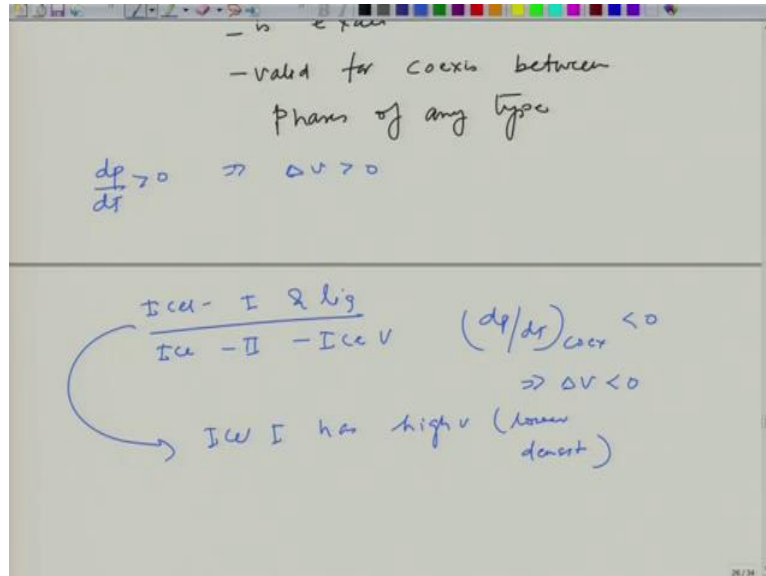 - is exact
- valid for coexis between
phases of any type
dp/dT > 0 ⇒ Δv > 0
Ice - I & liq
Ice - II - Ice V
(dp/dT)coex < 0
⇒ Δv < 0
Ice I has high v (lower
densit)
26 / 34